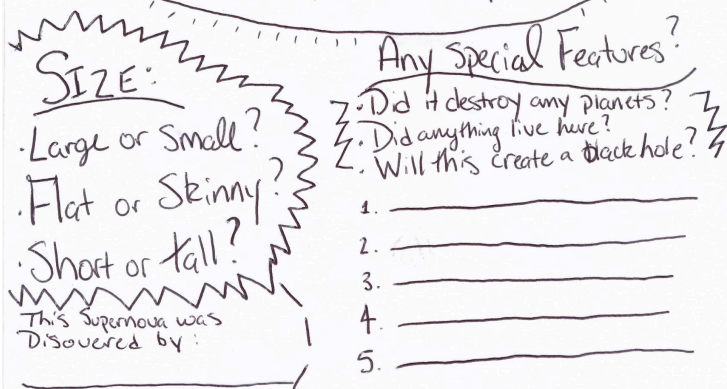 SIZE:
· Large or Small?
· Flat or Skinny?
· Short or tall?
This Supernova was
Disovered by:
Any Special Features?
· Did it destroy any planets?
· Did anything live here?
· Will this create a black hole?
1.
2.
3.
4.
5.